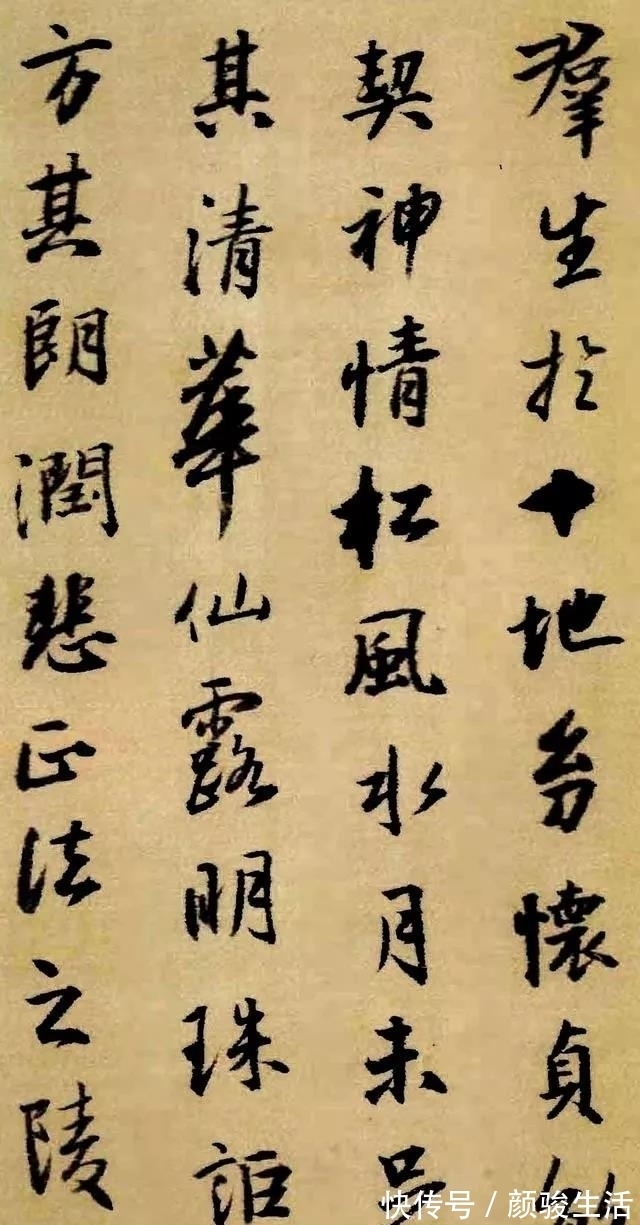 羣生於十地幼懷貞
契神情松風水月未
其清華仙露明珠詎
方其朗潤悲正法之陵
快传号 / 颜骏生活